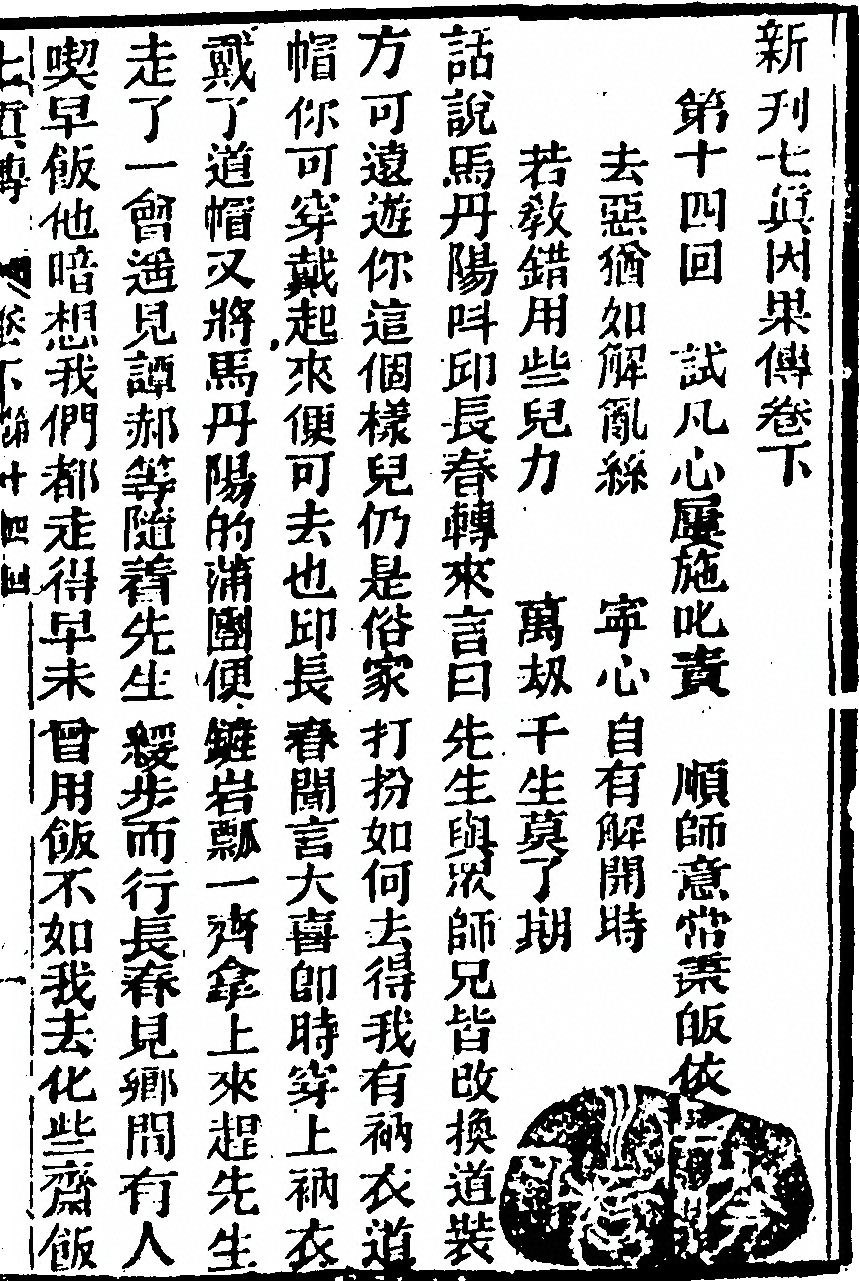 新刋七眞因果傳卷下
第十四回　試凡心屢施叱責　順師意常秉皈依
去惡猶如解亂絲　寕心自有解開時
若教錯用些兒力　萬刼千生莫了期
話說馬丹陽呌邱長春轉來言曰先生與眾師兄皆改換道裝
方可遠遊你這個樣兒仍是俗家打扮如何去得我有衲衣道
帽你可穿戴起來便可去也邱長春聞言大喜卽時穿上衲衣
戴了道帽又將馬丹陽的蒲團便鏟岩瓢一齊拿上來趕先生
走了一會遥見譚郝等隨着先生緩步而行長春見鄉間有人
喫早飯他暗想我們都走得早未曾用飯不如我去化些齋飯
七眞傳　卷下第十四回　一